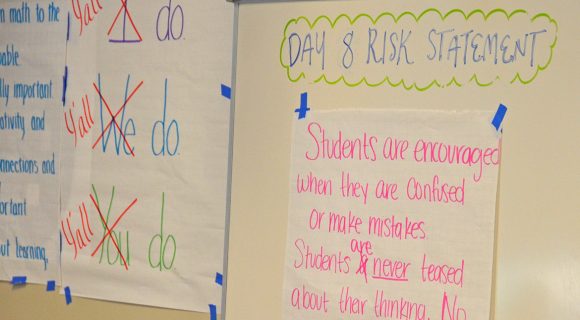 n math to the
pable.
lly important
ativity and
nnections and
ortant
out learning.
Y'all I do.
Y'all We do.
Y'all You do.
DAY 8 RISK STATEMENT
Students are encouraged
when they are confused
or make mistakes.
Students are never teased
about their thinking. No